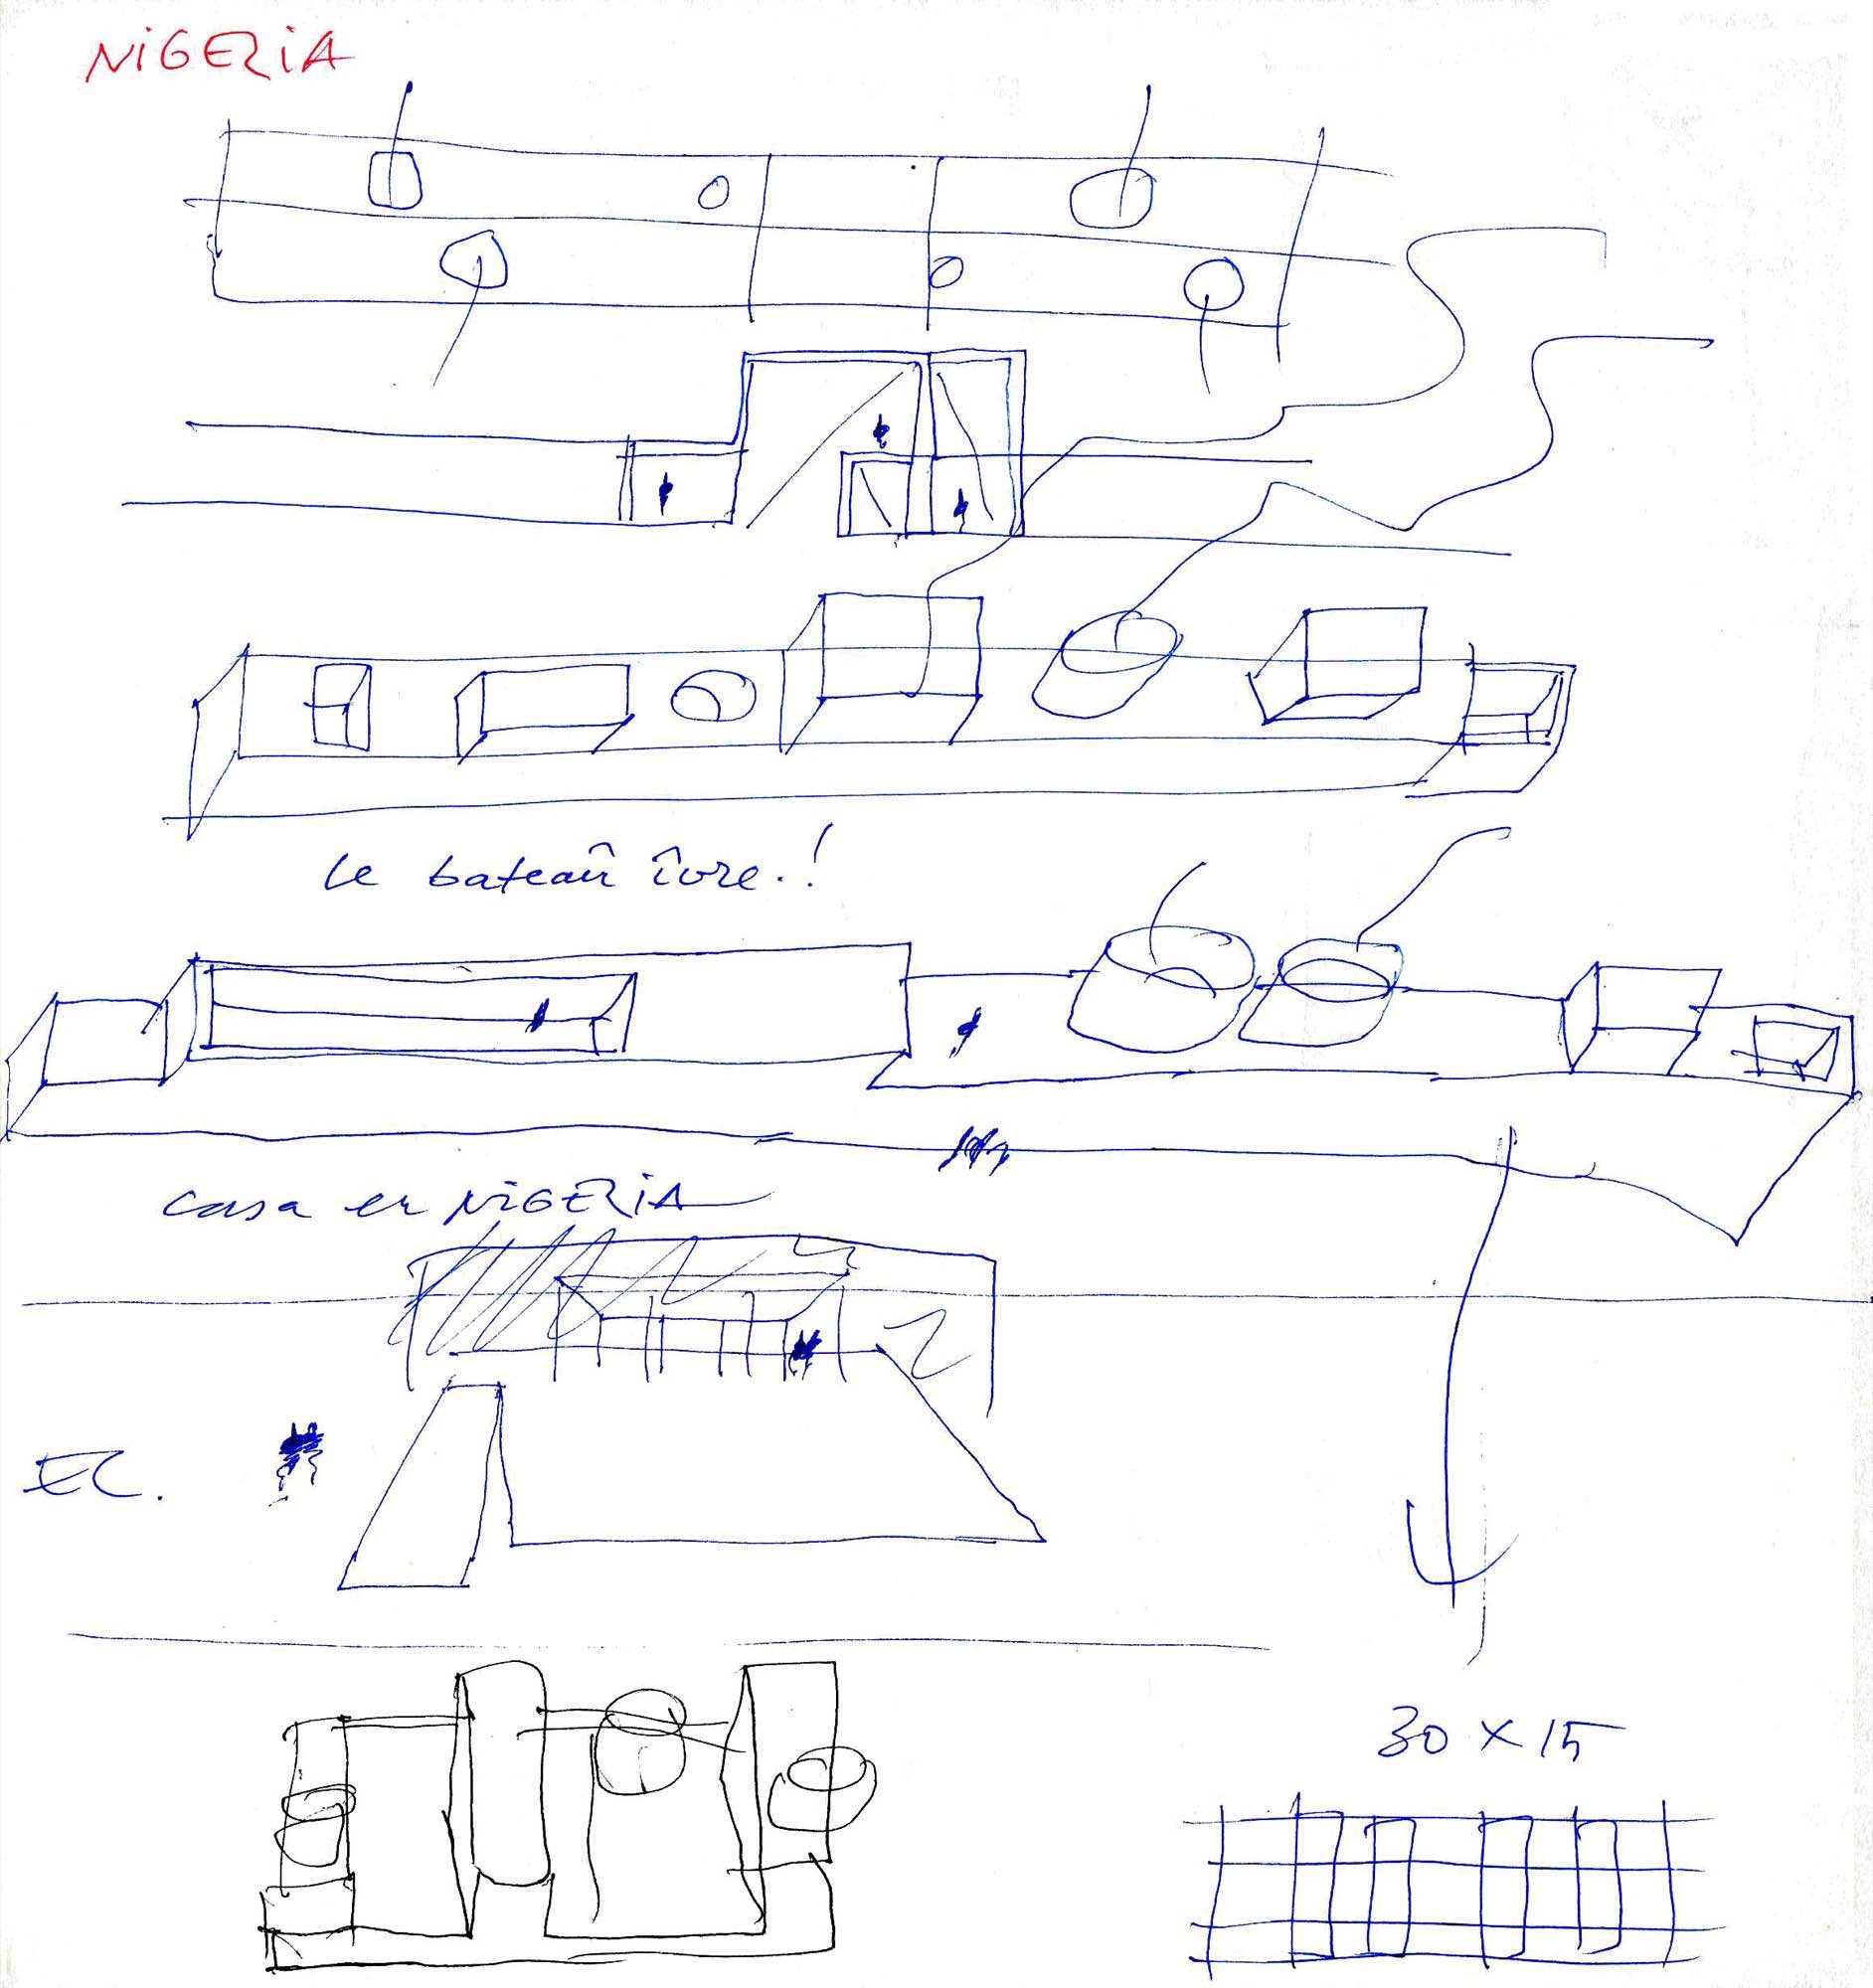 NiGERiA
le bateaû îvre.!
casa en NiGERiA
EC.
30 x 15